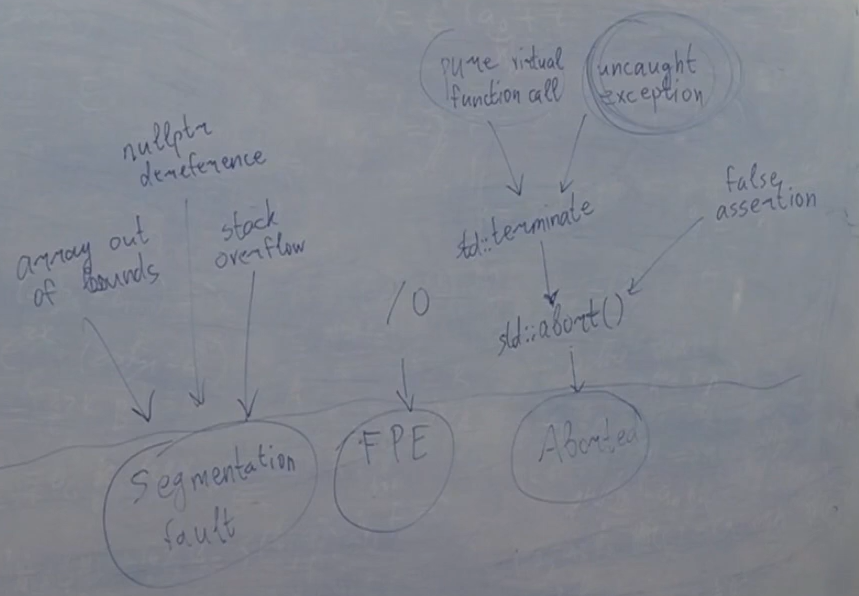 pure virtual
function call
uncaught
exception
nullptr
dereference
false
assertion
array out
of bounds
stack
overflow
std::terminate
/0
std::abort()
Segmentation
fault
FPE
Aborted